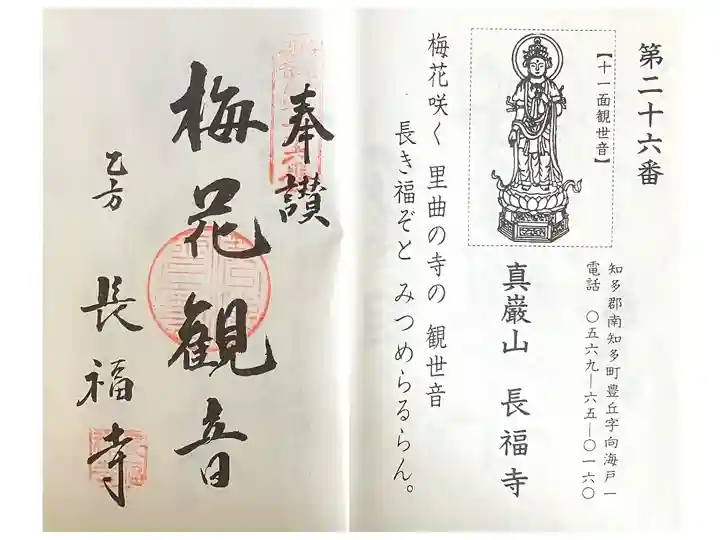 第二十六番
【十一面観世音】
知多郡南知多町豊丘字向海戸一
電話 〇五六九―六五―〇一六〇
真巌山 長福寺
梅花咲く 里曲の寺の 観世音
長き福ぞと みつめらるらん。
奉讃
梅花観音
乙方 長福寺